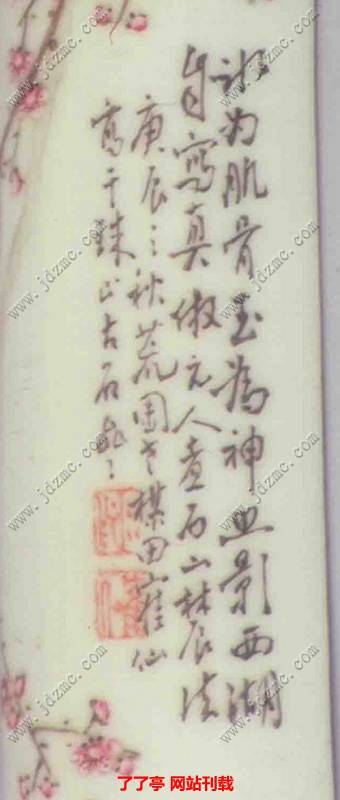 冰为肌骨玉為神照影西湖
自寫真倣元人煮石山農法
庚辰之秋荒園老楳田鶴仙
寫于珠山古石斋
www.jdzmc.com
了了亭 网站刊载